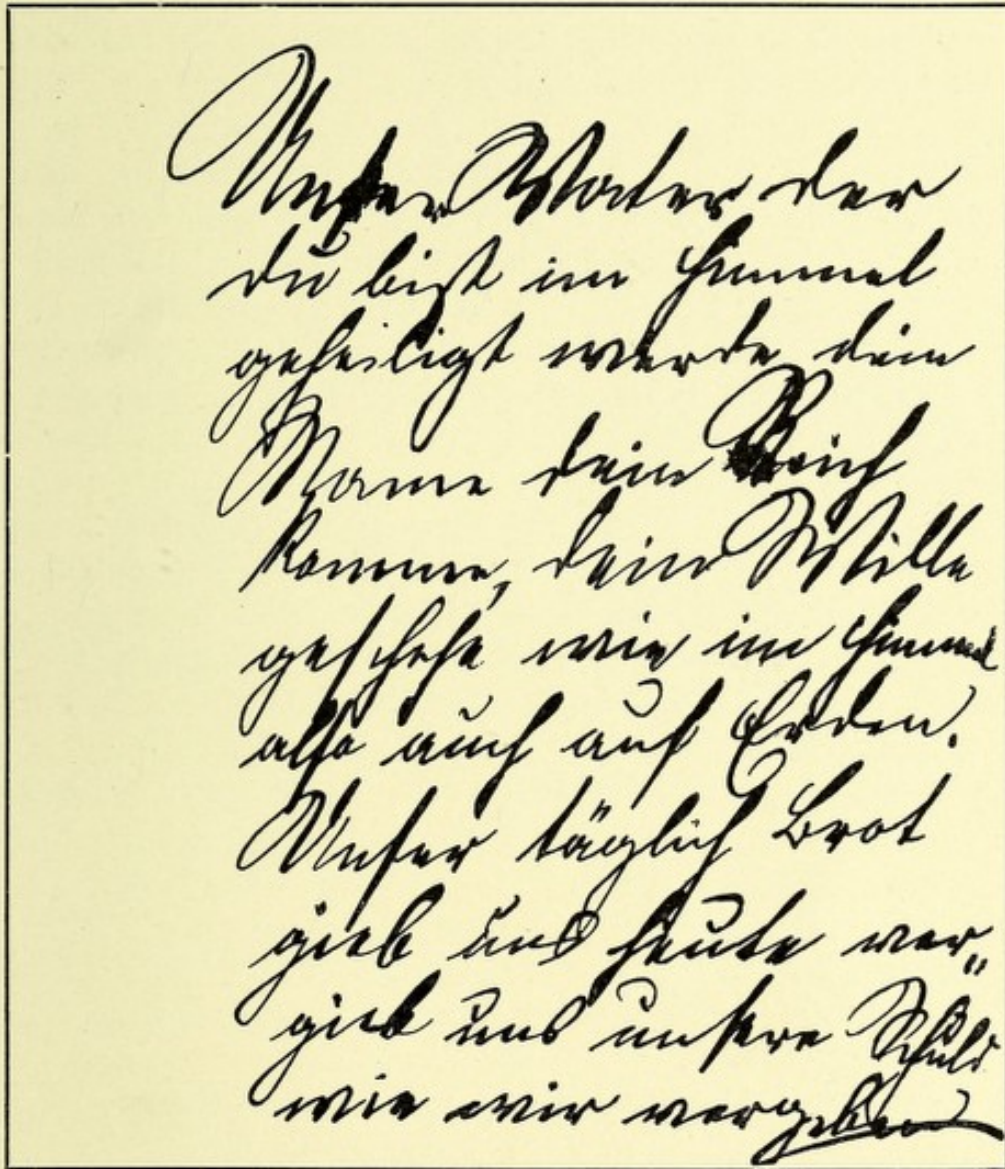 Unser Vater der
du bist im Himmel
geheiligt werde dein
Name dein Reich
komme, dein Wille
geschehe wie im Himmel
also auch auf Erden.
Unser täglich Brot
gieb uns heute ver„
gieb uns unsere Schuld
wie wir vergeben